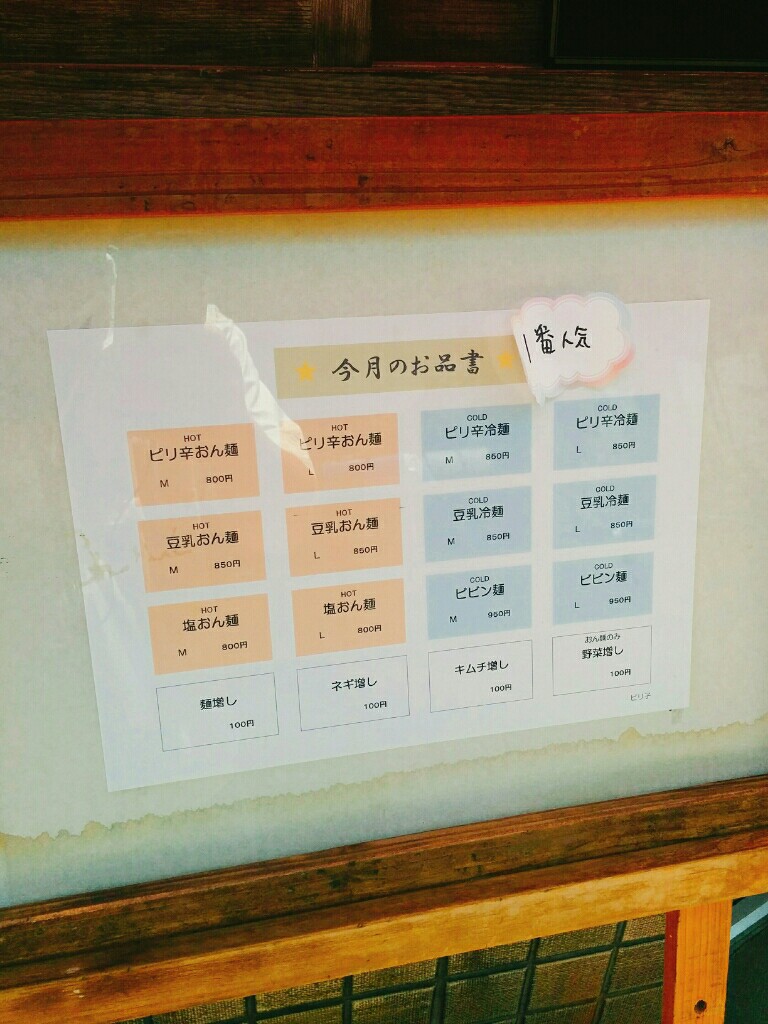 ★ 今月のお品書 ★
1番人気
HOT
ピリ辛おん麺
M 800円
HOT
ピリ辛おん麺
L 800円
COLD
ピリ辛冷麺
M 850円
COLD
ピリ辛冷麺
L 850円
HOT
豆乳おん麺
M 850円
HOT
豆乳おん麺
L 850円
COLD
豆乳冷麺
M 850円
COLD
豆乳冷麺
L 850円
HOT
塩おん麺
M 800円
HOT
塩おん麺
L 800円
COLD
ビビン麺
M 950円
COLD
ビビン麺
L 950円
麺増し
100円
ネギ増し
100円
キムチ増し
100円
おん麺のみ
野菜増し
100円
ピリ子